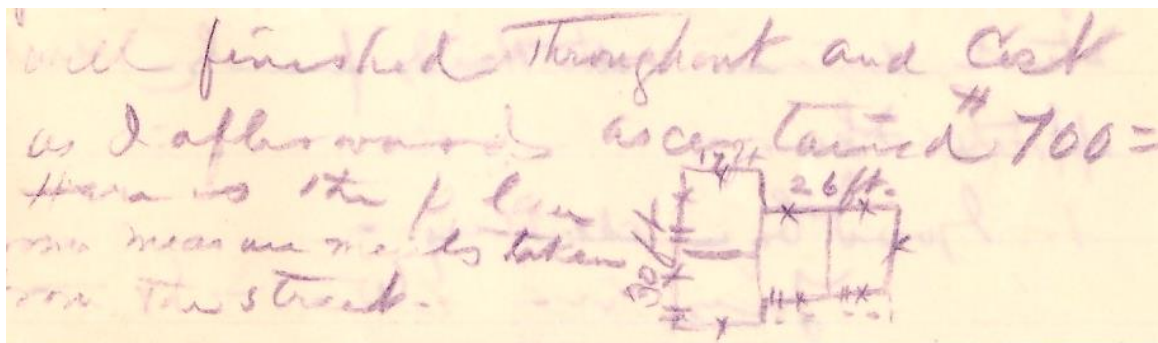 well finished Throughout and Cost
as I afterwards ascertained $700=
Here is the plan
measurements taken
the street.
17ft
26 ft.
30 ft